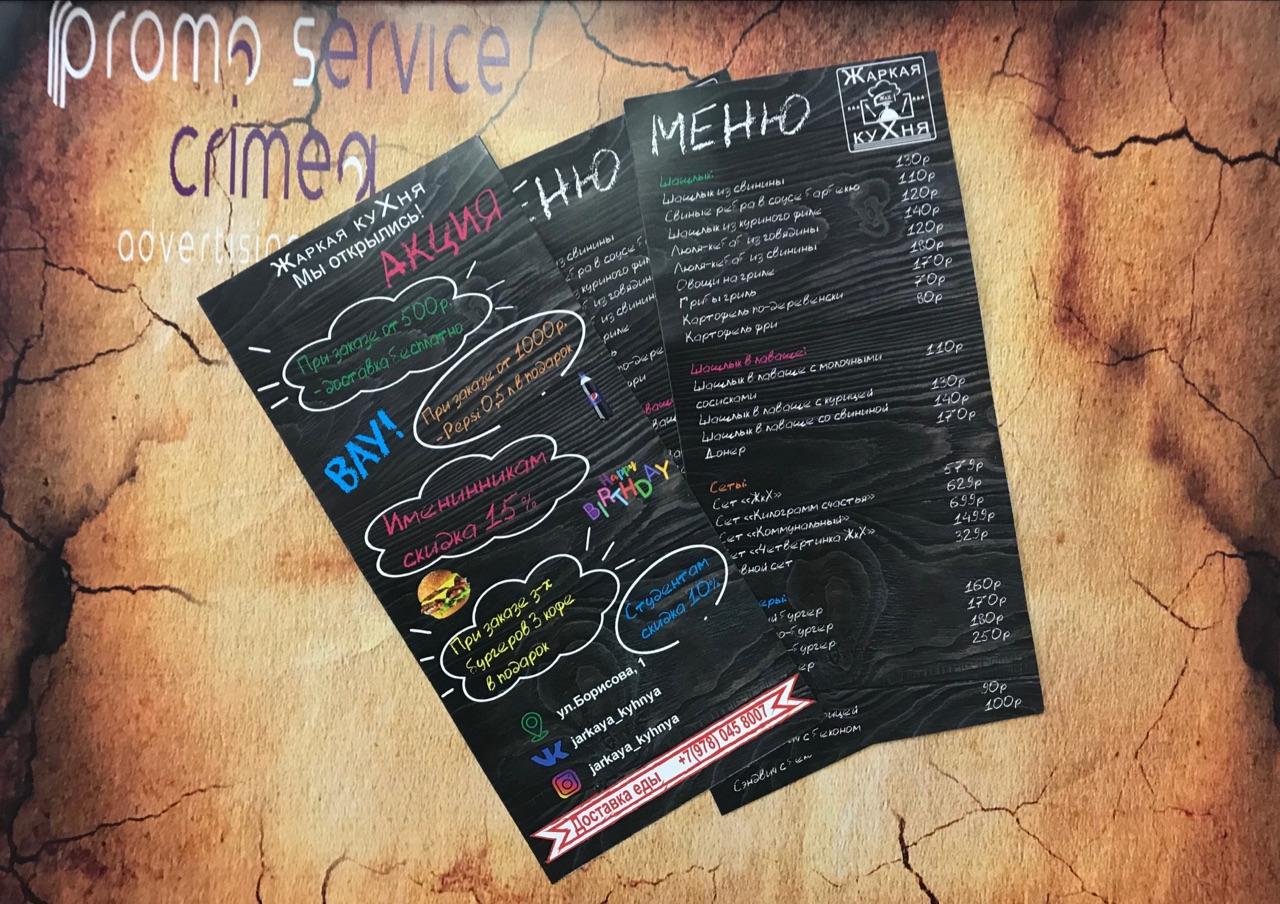 promo service
crimea
advertising
ЖАРКАЯ КУХНЯ
Мы открылись!
АКЦИЯ
При заказе от 500р.
-доставка бесплатно
При заказе от 1000р.
-Pepsi 0,5 л в подарок
ВАУ!
Именинникам
скидка 15%
Happy
BIRTHDAY
При заказе 3-х
бургеров 3 кофе
в подарок
Студентам
скидка 10%
ул.Борисова, 1
jarkaya_kyhnya
jarkaya_kyhnya
Доставка еды +7(978) 045 8007
МЕНЮ
ЖАРКАЯ
КУХНЯ
Шашлык:
Шашлык из свинины 130р
Свиные ребра в соусе барбекю 110р
Шашлык из куриного филе 120р
Люля-кебаб из говядины 140р
Люля-кебаб из свинины 120р
Овощи на гриле 180р
Грибы гриль 170р
Картофель по-деревенски 70р
Картофель фри 80р
Шашлык в лаваше:
Шашлык в лаваше с молочными 110р
сосисками
Шашлык в лаваше с курицей 130р
Шашлык в лаваше со свининой 140р
Донер 170р
Сеты:
Сет «ЖкХ» 579р
Сет «Килограмм счастья» 629р
Сет «Коммунальный» 699р
Сет «Четвертинка ЖкХ» 1499р
вной сет 329р
160р
170р
бургер 180р
250р
90р
100р
беконом
Сэндвич с